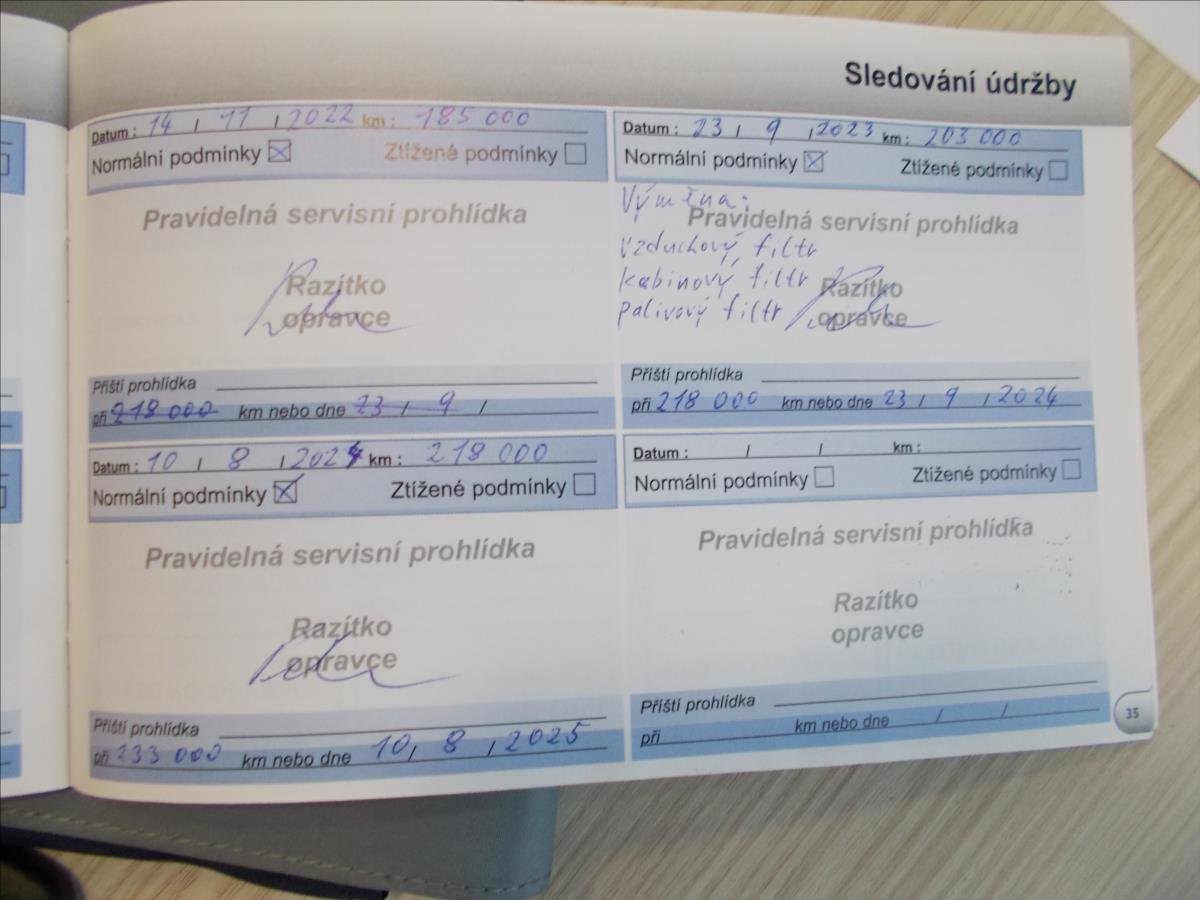 Sledování údržby
Datum : 14 / 11 / 2022 km : 185 000
Normální podmínky ☒ Ztížené podmínky ☐
Pravidelná servisní prohlídka
Razítko
opravce
Příští prohlídka
při 218 000 km nebo dne 23 / 9 /
Datum : 23 / 9 / 2023 km : 203 000
Normální podmínky ☒ Ztížené podmínky ☐
Výměna:
Pravidelná servisní prohlídka
vzduchový filtr
kabinový filtr
palivový filtr
Razítko
opravce
Příští prohlídka
při 218 000 km nebo dne 23 / 9 / 2024
Datum : 10 / 8 / 2024 km : 218 000
Normální podmínky ☒ Ztížené podmínky ☐
Pravidelná servisní prohlídka
Razítko
opravce
Příští prohlídka
při 233 000 km nebo dne 10 / 8 / 2025
Datum : / / km :
Normální podmínky ☐ Ztížené podmínky ☐
Pravidelná servisní prohlídka
Razítko
opravce
Příští prohlídka
při km nebo dne / /
35